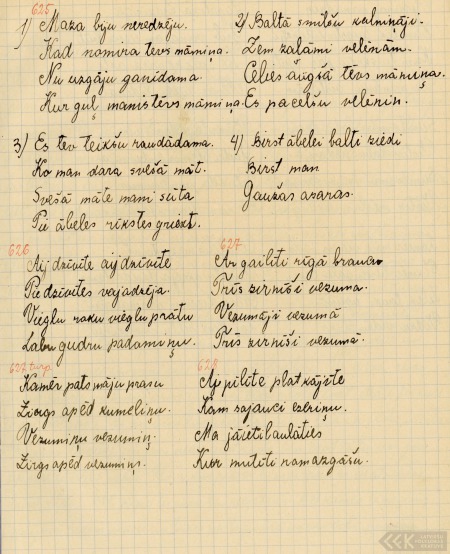 625
1) Maza biju neredzēju.
Kad nomira tēvs māmiņa.
Nu uzgāju ganīdama.
Kur guļ manis tēvs māmiņa.
2) Baltā smilšu kalniņāji.
Zem zaļāmi velēnām.
Celies augšā tēvs māmiņa.
Es pacelšu velēniņ.
3) Es tev teikšu raudādama.
Ko man dara svešā māt.
Svešā māte mani sūta
Pie ābeles rīkstes griezt.
4) Birst ābelei balti ziedi
Birst man
Gaužas asaras.
626
Aij dzīvīte aij dzīvīte
Pie dzīvītes vajadzēja.
Vieglu roku vieglu prātu
Labu gudru padomiņu.
627
Ar gailīti rīgā braucu
Trīs zirnīši vezumā.
Vezumāji vezumā
Trīs zirnīši vezumā.
627 turp.
Kamēr pats māju prasu
Zirgs apēd kumeliņu.
Vezumiņu vezumiņ.
Zirgs apēd vezumiņ.
628
Aj pilīte platkājīte
Kam sajauci ezeriņu.
Man jāiet laulāties
Kur mutīti nomazgāšu.